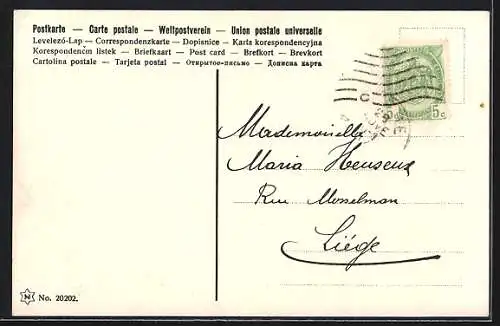 Postkarte — Carte postale — Weltpostverein — Union postale universelle
Levelező-Lap — Correspondenzkarte — Dopisnice — Karta korespondencyjna
Korespondenční lístek — Briefkaart — Post card — Brefkort — Brevkort
Cartolina postale — Tarjeta postal — Открытое-письмо — Дописна карта
5c
Mademoiselle
Maria Heuseux
Rue Mosselman
Liége
N
No. 20202.